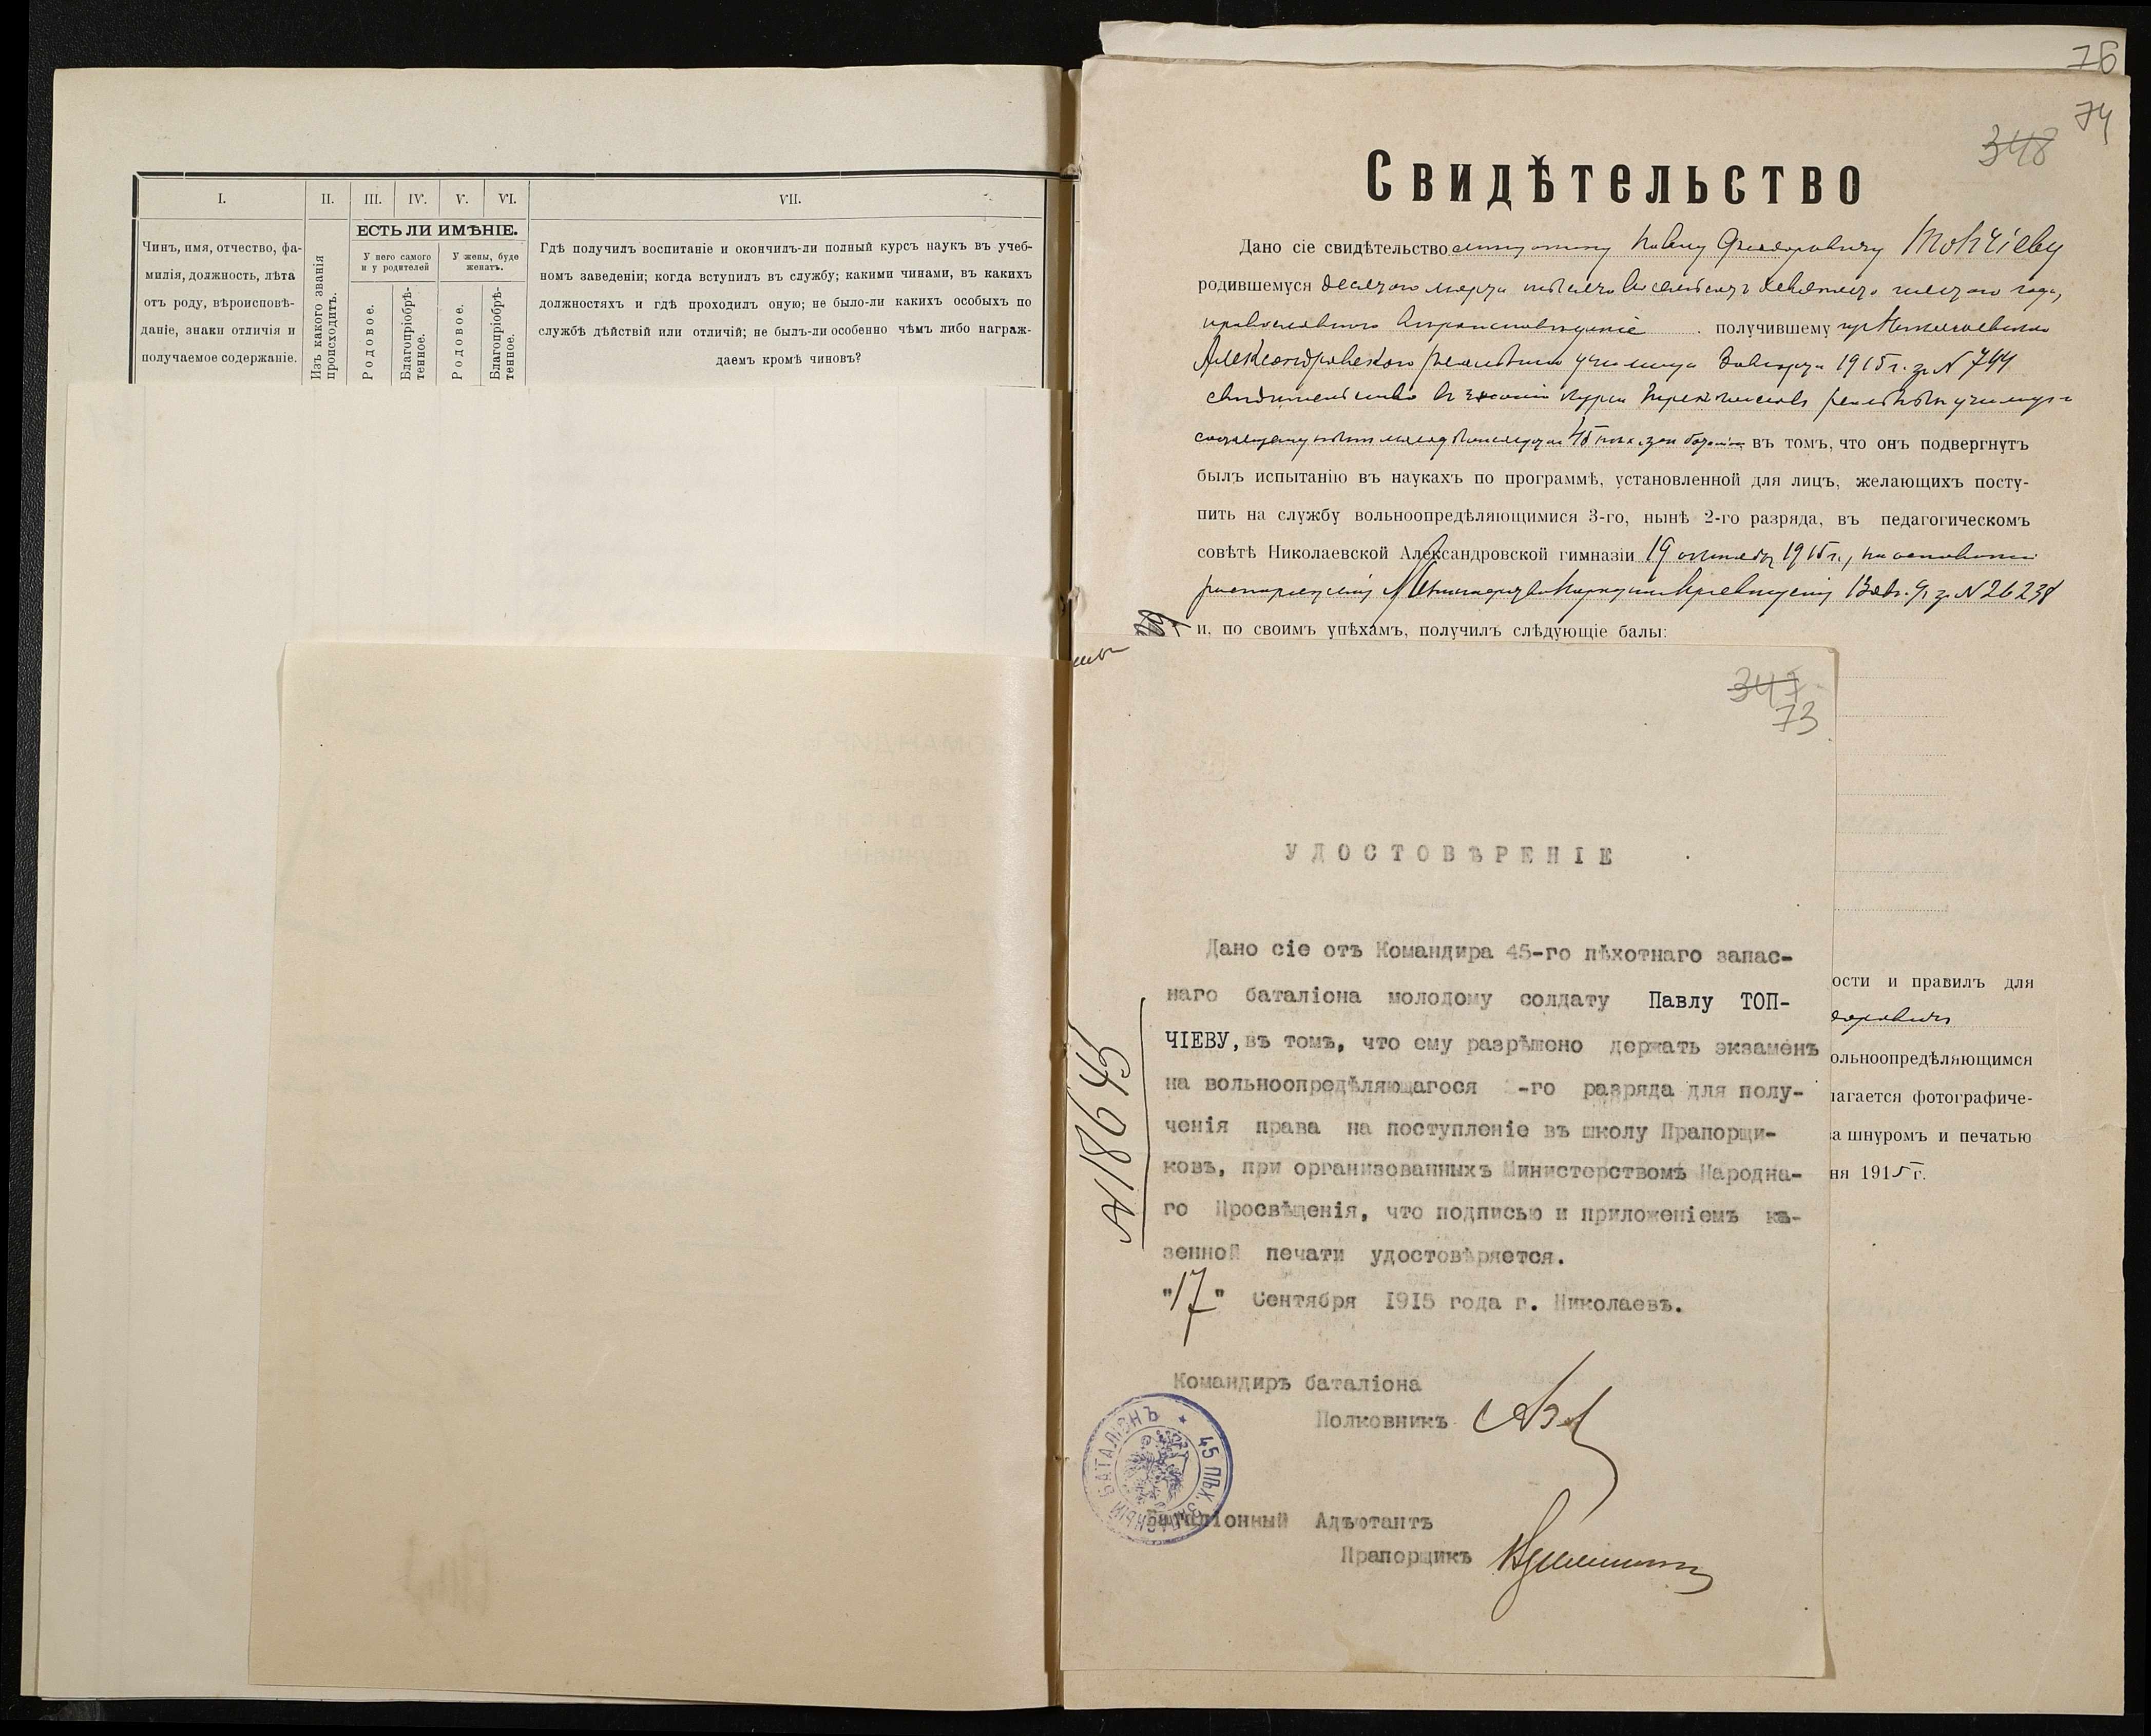 I.
II.
III.
IV.
V.
VI.
VII.
Чинъ, имя, отчество, фа-
милія, должность, лѣта
отъ роду, вѣроисповѣ-
даніе, знаки отличія и
получаемое содержаніе.
Изъ какого званія
происходитъ.
ЕСТЬ ЛИ ИМѢНІЕ.
У него самого
и у родителей
У жены, буде
женатъ.
Родовое.
Благопріобрѣ-
тенное.
Родовое.
Благопріобрѣ-
тенное.
Гдѣ получилъ воспитаніе и окончилъ-ли полный курсъ наукъ въ учеб-
номъ заведеніи; когда вступилъ въ службу; какими чинами, въ какихъ
должностяхъ и гдѣ проходилъ оную; не было-ли какихъ особыхъ по
службѣ дѣйствій или отличій; не былъ-ли особенно чѣмъ либо награж-
даемъ кромѣ чиновъ?
76
74
348
Свидѣтельство
Дано сіе свидѣтельство Павлу Топчіеву
родившемуся десятого марта тысяча восемьсотъ девяносто года,
православного вѣроисповѣданія получившему
Александровскаго реальнаго училища 1915 г. за N 744
свидѣтельство
45 въ томъ, что онъ подвергнутъ
былъ испытанію въ наукахъ по программѣ, установленной для лицъ, желающихъ посту-
пить на службу вольноопредѣляющимися 3-го, нынѣ 2-го разряда, въ педагогическомъ
совѣтѣ Николаевской Александровской гимназіи 19 октября 1915 г., на основаніи
распоряженія Министерства Народнаго Просвѣщенія N 26238
и, по своимъ успѣхамъ, получилъ слѣдующіе балы:
347
73
УДОСТОВѢРЕНІЕ
Дано сіе отъ Командира 45-го пѣхотнаго запас-
наго баталіона молодому солдату Павлу ТОП-
ЧІЕВУ, въ томъ, что ему разрѣшено держать экзаменъ
на вольноопредѣляющагося -го разряда для полу-
ченія права на поступленіе въ школу Прапорщи-
ковъ, при организованныхъ Министерствомъ Народна-
го Просвѣщенія, что подписью и приложеніемъ ка-
зенной печати удостовѣряется.
"17" Сентября 1915 года г. Николаевъ.
N 18645
Командиръ баталіона
Полковникъ
45 ПѢХ. ЗАПАСНЫЙ БАТАЛІОНЪ
Баталіонный Адъютантъ
Прапорщикъ
ости и правилъ для
ольноопредѣляющимся
лагается фотографиче-
за шнуромъ и печатью
ня 1915 г.